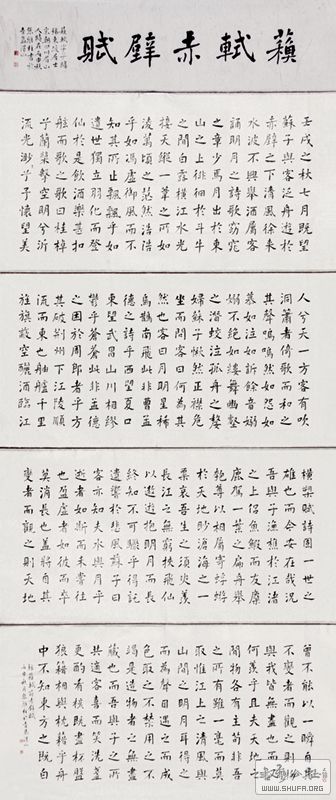 蘇軾赤壁賦
壬戌之秋七月既望
蘇子與客泛舟遊於
赤壁之下清風徐來
水波不興舉酒屬客
誦明月之詩歌窈窕
之章少焉月出於東
山之上徘徊於斗牛
之間白露橫江水光
接天縱一葦之所如
凌萬頃之茫然浩浩
乎如馮虛御風而不
知其所止飄飄乎如
遺世獨立羽化而登
仙於是飲酒樂甚扣
舷而歌之歌曰桂棹
兮蘭槳擊空明兮泝
流光渺渺兮予懷望美
人兮天一方客有吹
洞簫者倚歌而和之
其聲嗚嗚然如怨如
慕如泣如訴餘音嫋
嫋不絕如縷舞幽壑
之潛蛟泣孤舟之嫠
婦蘇子愀然正襟危
坐而問客曰何為其
然也客曰月明星稀
烏鵲南飛此非曹孟
德之詩乎西望夏口
東望武昌山川相繆
鬱乎蒼蒼此非孟德
之困於周郎者乎方
其破荊州下江陵順
流而東也舳艫千里
旌旗蔽空釃酒臨江
橫槊賦詩固一世之
雄也而今安在哉況
吾與子漁樵於江渚
之上侶魚蝦而友麋
鹿駕一葉之扁舟舉
匏尊以相屬寄蜉蝣
於天地渺滄海之一
粟哀吾生之須臾羨
長江之無窮挾飛仙
以遨遊抱明月而長
終知不可驟得託
遺響於悲風蘇子曰
客亦知夫水與月乎
逝者如斯而未嘗往
也盈虛者如彼而卒
莫消長也蓋將自其
變者而觀之則天地
曾不能以一瞬自其
不變者而觀之則物
與我皆無盡也而又
何羨乎且夫天地之
間物各有主苟非吾
之所有雖一毫而莫
取惟江上之清風與
山間之明月耳得之
而為聲目遇之而成
色取之無禁用之不
竭是造物者之無盡
藏也而吾與子之所
共適客喜而笑洗盞
更酌肴核既盡杯盤
狼籍相與枕藉乎舟
中不知東方之既白
WWW.SHUFA.ORG